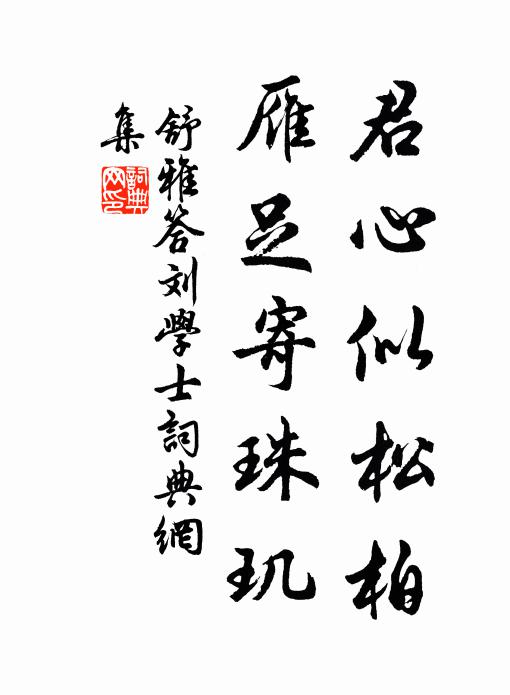 君心似松柏
雁足寄珠玑
舒雅答刘學士詞典網
集
詞典
网印